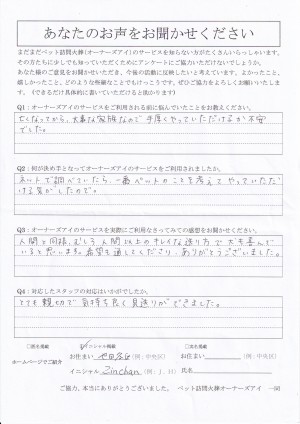 あなたのお声をお聞かせください
まだまだペット訪問火葬(オーナーズアイ)のサービスを知らない方がたくさんいらっしゃいます。
その方たちに少しでも知っていただくためにアンケートにご協力いただけないでしょうか。
あなた様のご意見をお聞かせいただき、今後の活動に反映したいと考えています。よかったこと、
嬉しかったこと、どのような些細なことでもけっこうです。ぜひご協力をよろしくお願いいたします。
(できるだけ具体的に書いていただけると助かります。)
Q1：オーナーズアイのサービスをご利用される前に悩んでいたことをお教えください。
亡くなってから、大事な家族なので手厚くやっていただけるか不安
でした。
Q2：何が決め手となってオーナーズアイのサービスをご利用されましたか。
ネットで調べていたら、一番ペットのことを考えてやっていただ
ける気がしたので。
Q3：オーナーズアイのサービスを実際にご利用なさってみての感想をお聞かせください。
人間と同様、むしろ人間以上のキレイな送り方で犬も喜んで
いると思います。希望も通してくださり、ありがとうございました。
Q4：対応したスタッフの対応はいかがでしたか。
とても親切で気持ち良く見送りができました。
□匿名掲載 イニシャル掲載 □実名掲載
ホームページでご紹介
お住まい (例：中央区) お住まい (例：中央区)
イニシャル Zinchan (例：J．H) 氏名
ご協力、本当にありがとうございました。 ペット訪問火葬オーナーズアイ